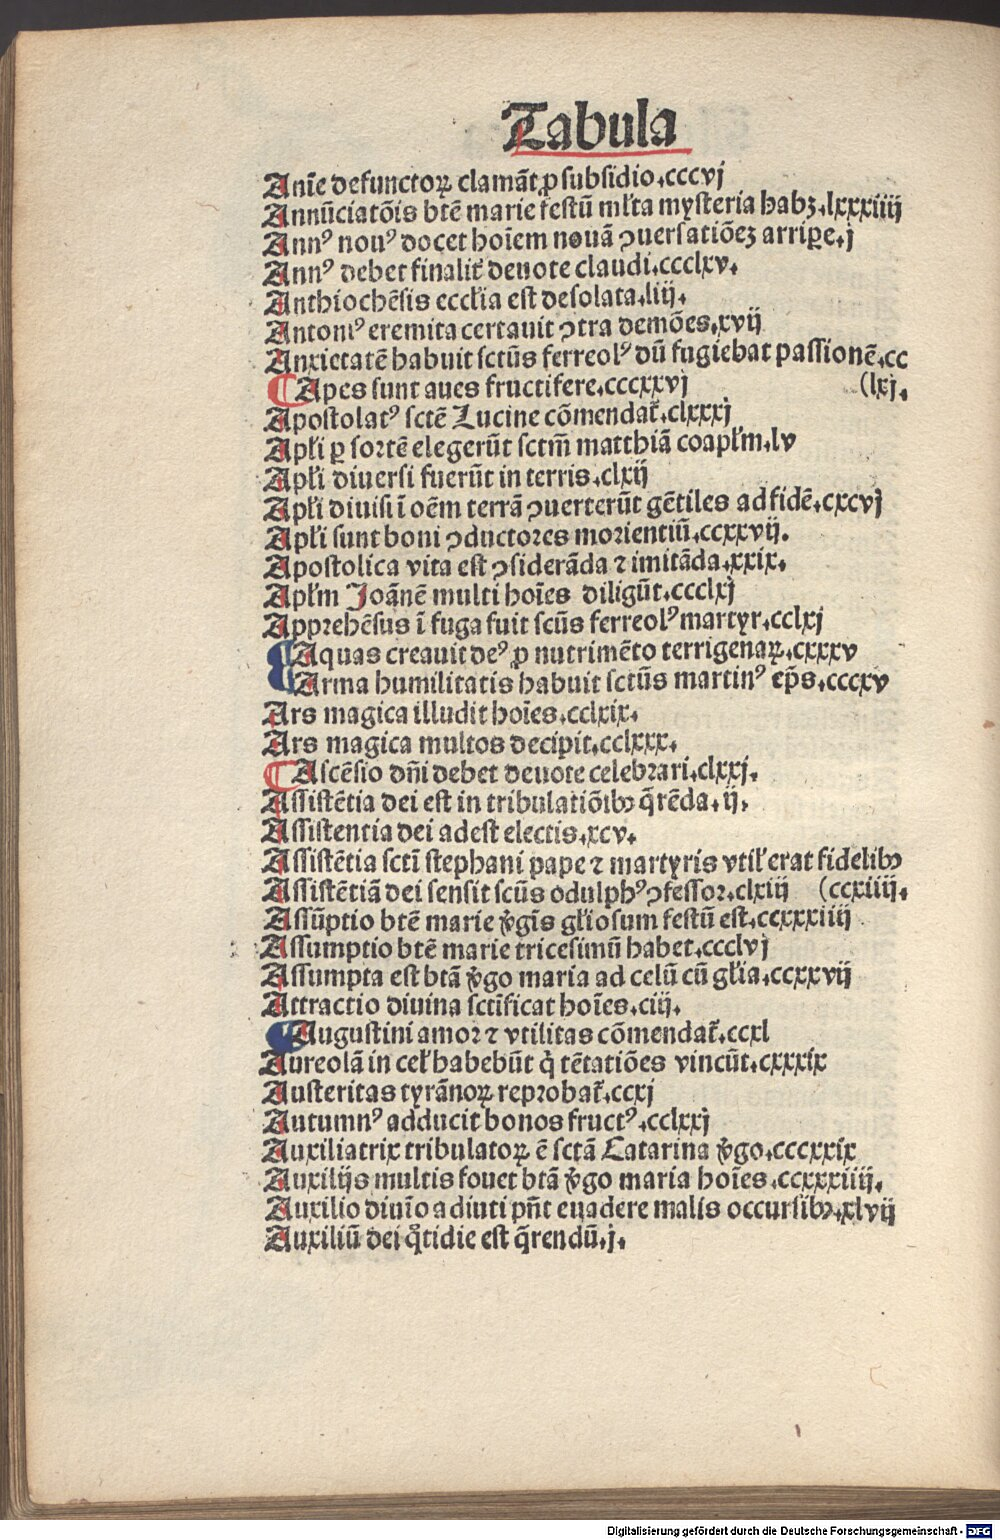 Tabula
Anīe defunctoꝝ clamāt ꝓ subsidio.cccvj
Annūciatōis btē marie festū ml̃ta mysteria habꝫ.lxxxiiij
Annꝰ nouꝰ docet hoīem nouā ꝯuersatiōeꝫ arripe.j
Annꝰ debet finalit̃ deuote claudi.ccclxv.
Anthiochēsis eccl̃ia est desolata.liij.
Antoniꝰ eremita certauit ꝯtra demōes.xvij
Anxietatē habuit sctūs ferreolꝰ dū fugiebat passionē.cc
¶Apes sunt aues fructifere.cccxxvj (lxj.
Apostolatꝰ sctē Lucine cōmendat̃.clxxxj
Apl̃i ꝑ sortē elegerūt sctm̄ matthiā coapl̃m.lv
Apl̃i diuersi fuerūt in terris.clxij
Apl̃i diuisi ī oēm terrā ꝯuerterūt gētiles ad fidē.cxcvj
Apl̃i sunt boni ꝯductores morientiū.ccxxvij.
Apostolica vita est ꝯsiderāda ⁊ imitāda.xxix.
Apl̃m Joānē multi hoīes diligūt.ccclxj
Apprehēsus ī fuga fuit scūs ferreolꝰ martyr.cclxj
¶Aquas creauit deꝰ ꝓ nutrimēto terrigenaꝝ.cxxxv
¶Arma humilitatis habuit sctūs martinꝰ ep̄s.cccxv
Ars magica illudit hoīes.cclxix.
Ars magica multos decipit.cclxxx.
¶Ascēsio dn̄i debet deuote celebrari.clxxj.
Assistētia dei est in tribulatiōibꝰ q̄rēda.ij.
Assistentia dei adest electis.xcv.
Assistētia sctī stephani pape ⁊ martyris vtil̃ erat fidelibꝰ
Assistētiā dei sensit scūs odulphꝰ ꝯfessor.clxiij (ccxiiij.
Assūptio btē marie v̄gīs gl̃iosum festū est.ccxxxiiij
Assumptio btē marie tricesimū habet.ccclvj
Assumpta est btā v̄go maria ad celū cū gl̃ia.ccxxvij
Attractio diuina sctīficat hoīes.ciij.
¶Augustini amor ⁊ vtilitas cōmendat̃.ccxl
Aureolā in cel̃ habebūt q̇ tētatiōes vincūt.cxxxix
Austeritas tyrānoꝝ reprobat̃.ccxj
Autumnꝰ adducit bonos fructꝰ.cclxxj
Auxiliatrix tribulatoꝝ ē sctā Catarina v̄go.cccxxix
Auxilijs multis fouet btā v̄go maria hoīes.ccxxxiiij.
Auxilio diuīo adiuti pn̄t euadere malis occursibꝰ.xlvij
Auxiliū dei q̊tidie est q̄rendū.j.
Digitalisierung gefördert durch die Deutsche Forschungsgemeinschaft - DFG